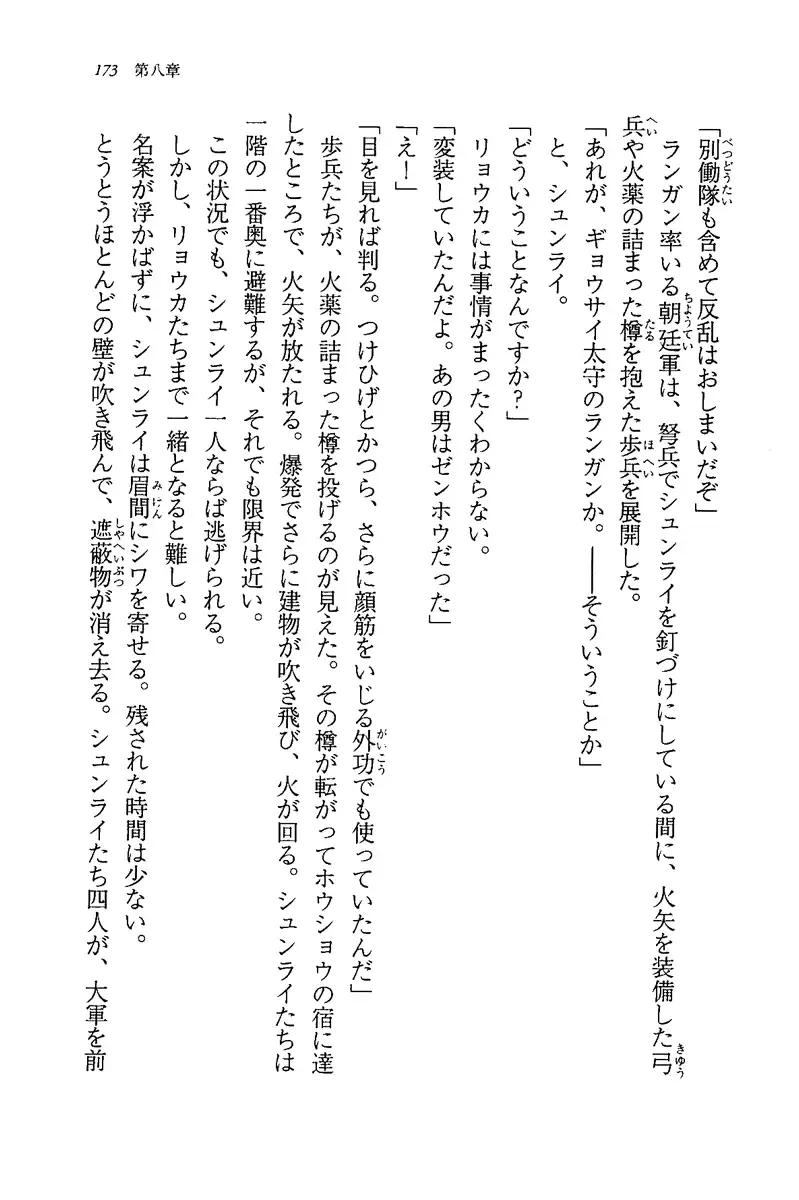 173 第八章
「別働隊も含めて反乱はおしまいだぞ」
ランガン率いる朝廷軍は、弩兵でシュンライを釘づけにしている間に、火矢を装備した弓
兵や火薬の詰まった樽を抱えた歩兵を展開した。
「あれが、ギョウサイ太守のランガンか。――そういうことか」
と、シュンライ。
「どういうことなんですか?」
リョウカには事情がまったくわからない。
「変装していたんだよ。あの男はゼンホウだった」
「え!」
「目を見れば判る。つけひげとかつら、さらに顔筋をいじる外功でも使っていたんだ」
歩兵たちが、火薬の詰まった樽を投げるのが見えた。その樽が転がってホウショウの宿に達
したところで、火矢が放たれる。爆発でさらに建物が吹き飛び、火が回る。シュンライたちは
一階の一番奥に避難するが、それでも限界は近い。
この状況でも、シュンライ一人ならば逃げられる。
しかし、リョウカたちまで一緒となると難しい。
名案が浮かばずに、シュンライは眉間にシワを寄せる。残された時間は少ない。
とうとうほとんどの壁が吹き飛んで、遮蔽物が消え去る。シュンライたち四人が、大軍を前